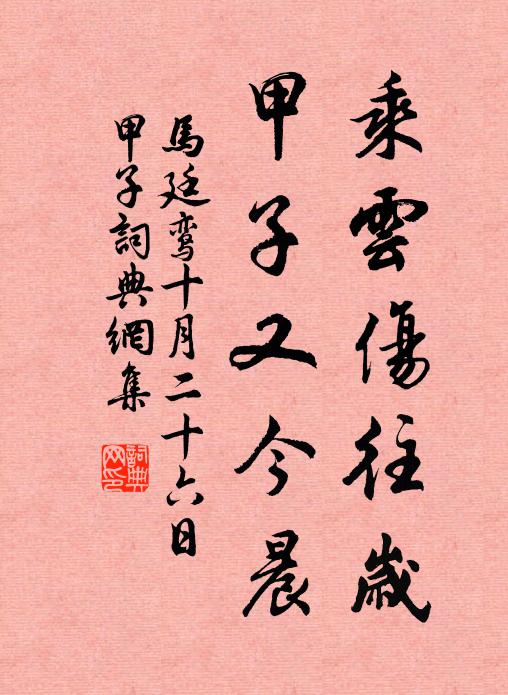 乘雲傷往歲
甲子又今晨
馬廷鸞十月二十六日
甲子詞典網集
詞典网印